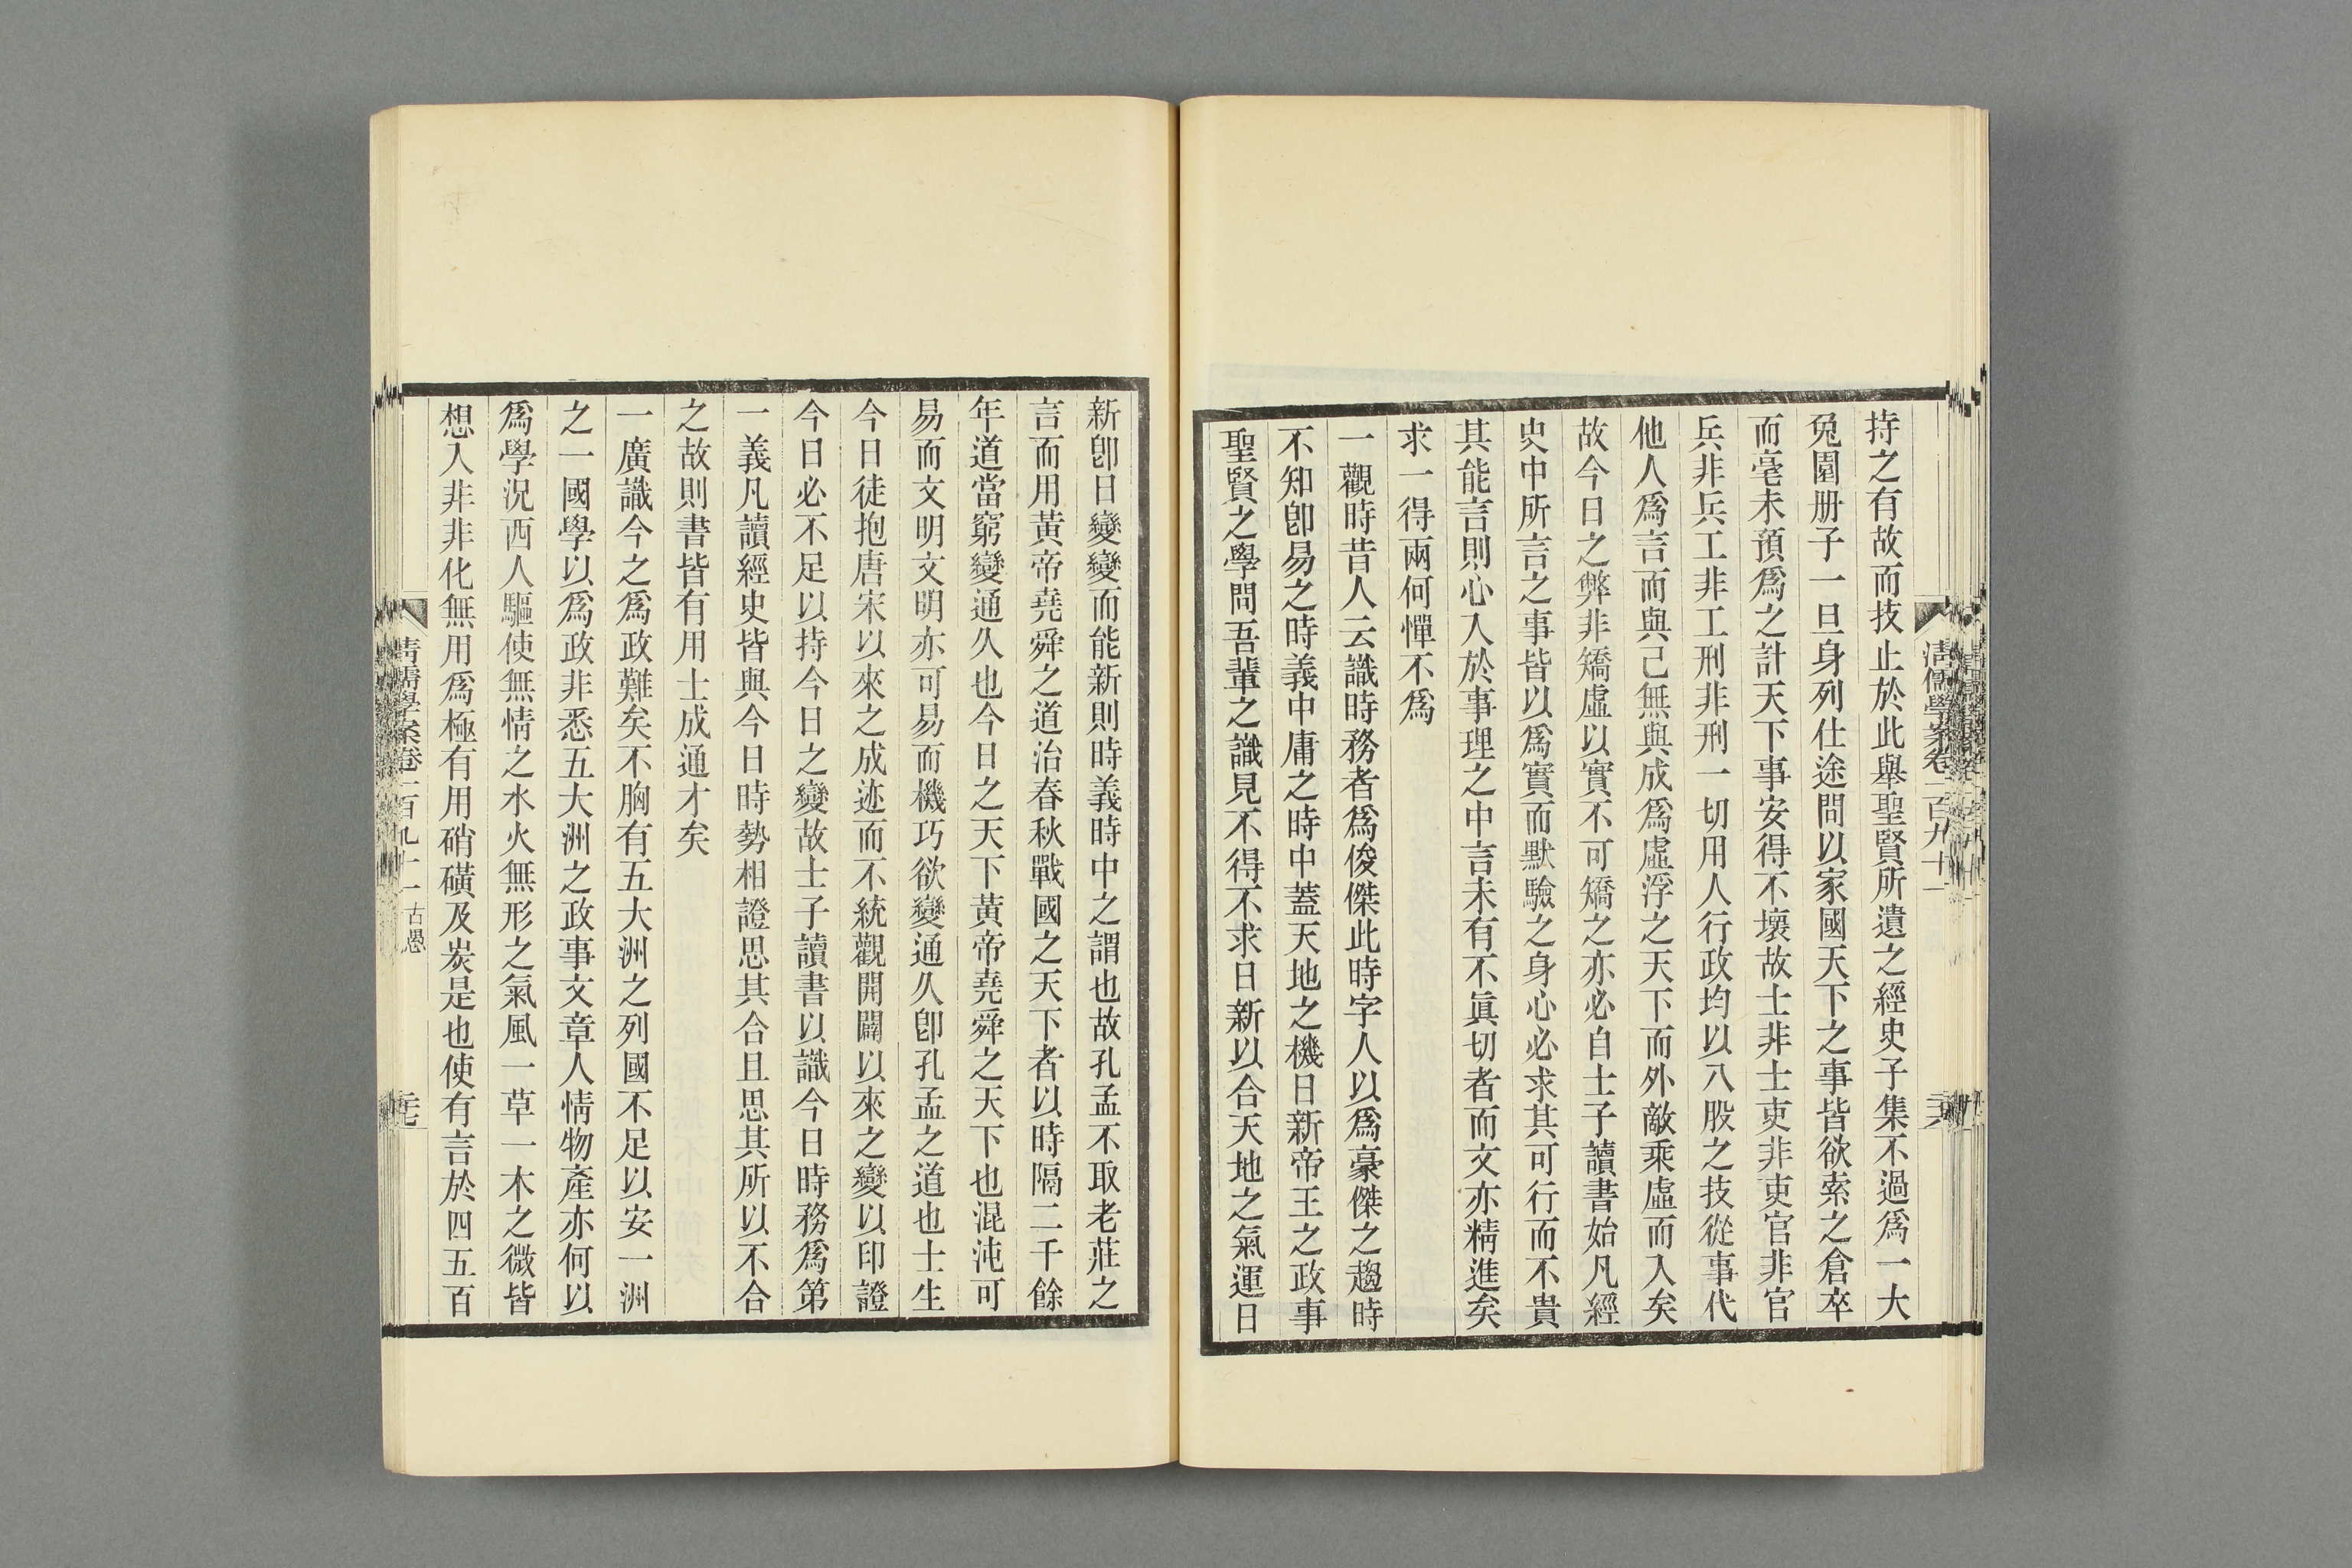 清儒學案卷一百九十一
持之有故而技止於此舉聖賢所遺之經史子集不過爲一大
兔園册子一旦身列仕途問以家國天下之事皆欲索之倉卒
而毫未預爲之計天下事安得不壞故士非士吏非吏官非官
兵非兵工非工刑非刑一切用人行政均以八股之技從事代
他人爲言而與己無與成爲虛浮之天下而外敵乘虛而入矣
故今日之弊非矯虛以實不可矯之亦必自士子讀書始凡經
史中所言之事皆以爲實而默驗之身心必求其可行而不貴
其能言則心入於事理之中言未有不眞切者而文亦精進矣
求一得兩何憚不爲
一觀時昔人云識時務者爲俊傑此時字人以爲豪傑之趨時
不知卽易之時義中庸之時中蓋天地之機日新帝王之政事
聖賢之學問吾輩之識見不得不求日新以合天地之氣運日
新卽日變變而能新則時義時中之謂也故孔孟不取老莊之
言而用黃帝堯舜之道治春秋戰國之天下者以時隔二千餘
年道當窮變通久也今日之天下黃帝堯舜之天下也混沌可
易而文明文明亦可易而機巧欲變通久卽孔孟之道也士生
今日徒抱唐宋以來之成迹而不統觀開闢以來之變以印證
今日必不足以持今日之變故士子讀書以識今日時務爲第
一義凡讀經史皆與今日時勢相證思其合且思其所以不合
之故則書皆有用士成通才矣
一廣識今之爲政難矣不胸有五大洲之列國不足以安一洲
之一國學以爲政非悉五大洲之政事文章人情物產亦何以
爲學況西人驅使無情之水火無形之氣風一草一木之微皆
想入非非化無用爲極有用硝磺及炭是也使有言於四五百
清儒學案卷一百九十一 古愚